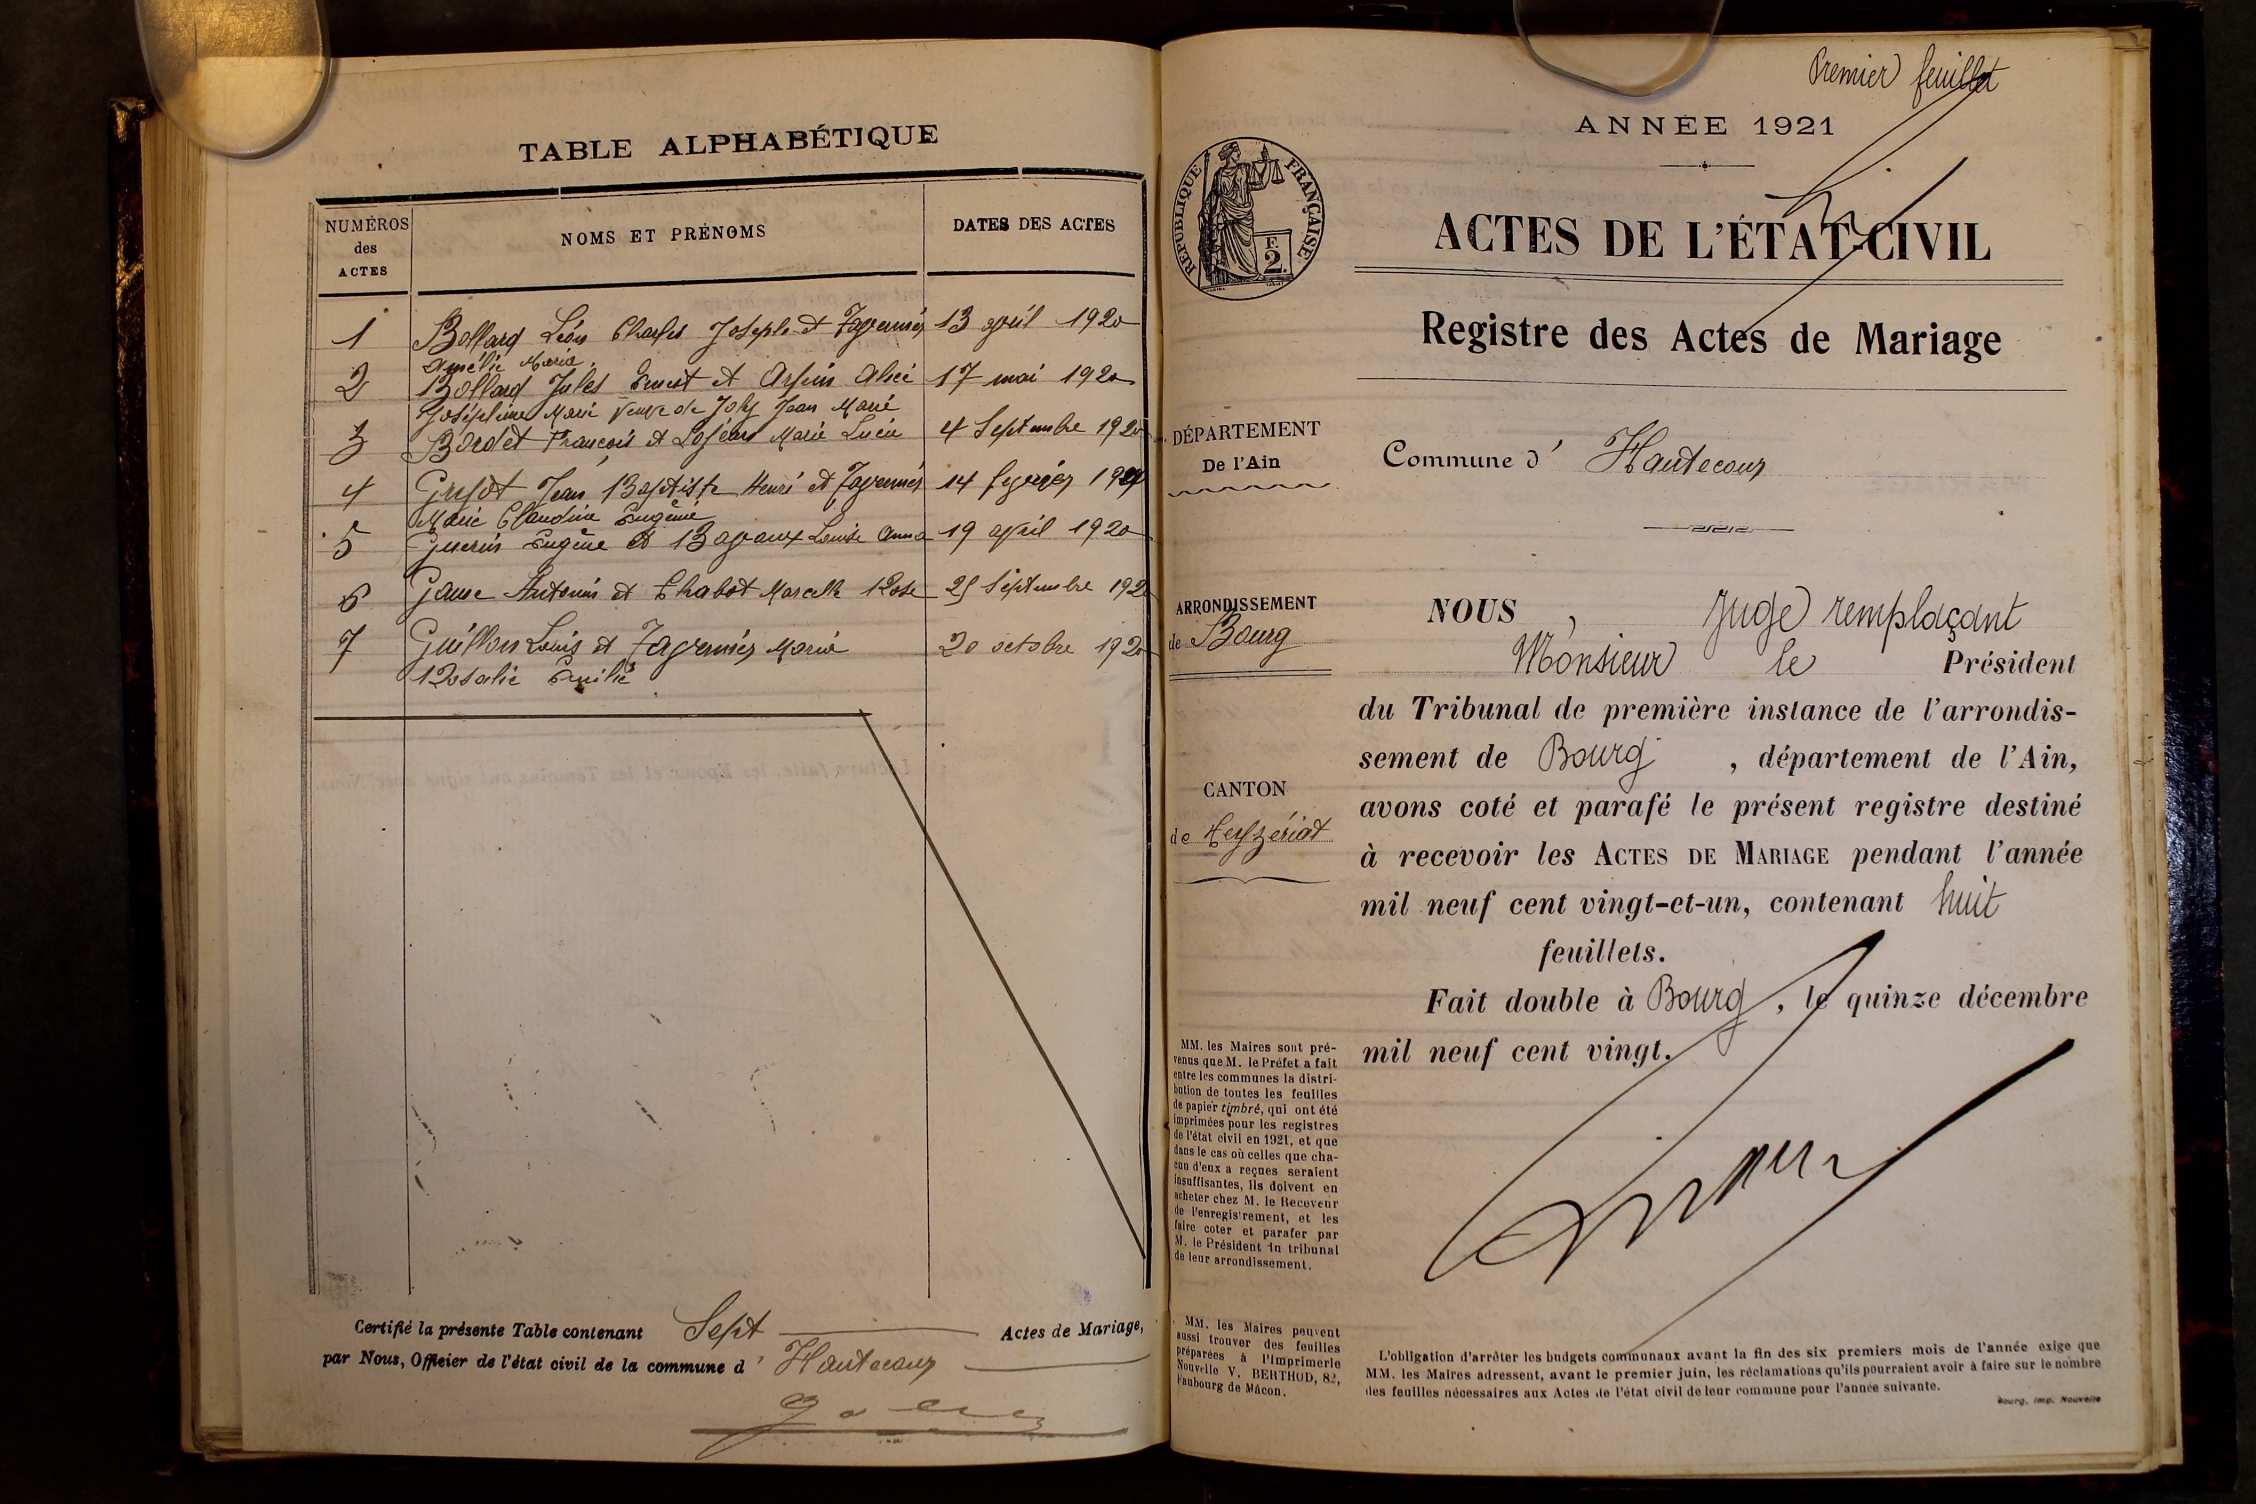 TABLE ALPHABÉTIQUE
NUMÉROS
des
ACTES
NOMS ET PRÉNOMS
DATES DES ACTES
1 Bollard Léon Charles Joseph et Tavernier 13 avril 1920
Amélie Maria
2 Bollard Jules Ernest et Alice 17 mai 1920
Joséphine Marie veuve de Joly Jean Marie
3 Bordet François et Marie Lucie 4 Septembre 1920
4 Guyot Jean Baptiste Henri et Tavernier 14 février
Marie Claudine Eugénie
5 Guerin Eugène et Bavoux Louise Anna 19 avril 1920
6 Antonin et Chabot Marcelle Rose 25 Septembre 1920
7 Guillon Louis et Tavernier Maria 20 octobre 1920
Rosalie Emilie
Certifié la présente Table contenant Sept Actes de Mariage,
par Nous, Officier de l'état civil de la commune d' Hautecour
Premier feuillet
ANNÉE 1921
RÉPUBLIQUE FRANÇAISE
F.
2.
ACTES DE L'ÉTAT-CIVIL
Registre des Actes de Mariage
DÉPARTEMENT
De l'Ain
Commune d' Hautecour
ARRONDISSEMENT
de Bourg
CANTON
de Ceyzériat
NOUS, Juge remplaçant
Monsieur le Président
du Tribunal de première instance de l'arrondis-
sement de Bourg, département de l'Ain,
avons coté et parafé le présent registre destiné
à recevoir les ACTES DE MARIAGE pendant l'année
mil neuf cent vingt-et-un, contenant huit
feuillets.
Fait double à Bourg, le quinze décembre
mil neuf cent vingt.
MM. les Maires sont pré-
venus que M. le Préfet a fait
entre les communes la distri-
bution de toutes les feuilles
de papier timbré, qui ont été
imprimées pour les registres
de l'état civil en 1921, et que
dans le cas où celles que cha-
cun d'eux a reçues seraient
insuffisantes, ils doivent en
acheter chez M. le Receveur
de l'enregistrement, et les
faire coter et parafer par
M. le Président du tribunal
de leur arrondissement.
MM. les Maires peuvent
aussi trouver des feuilles
préparées à l'Imprimerie
Nouvelle V. BERTHOD, 82,
Faubourg de Mâcon.
L'obligation d'arrêter les budgets communaux avant la fin des six premiers mois de l'année exige que
MM. les Maires adressent, avant le premier juin, les réclamations qu'ils pourraient avoir à faire sur le nombre
des feuilles nécessaires aux Actes de l'état civil de leur commune pour l'année suivante.
Bourg, Imp. Nouvelle